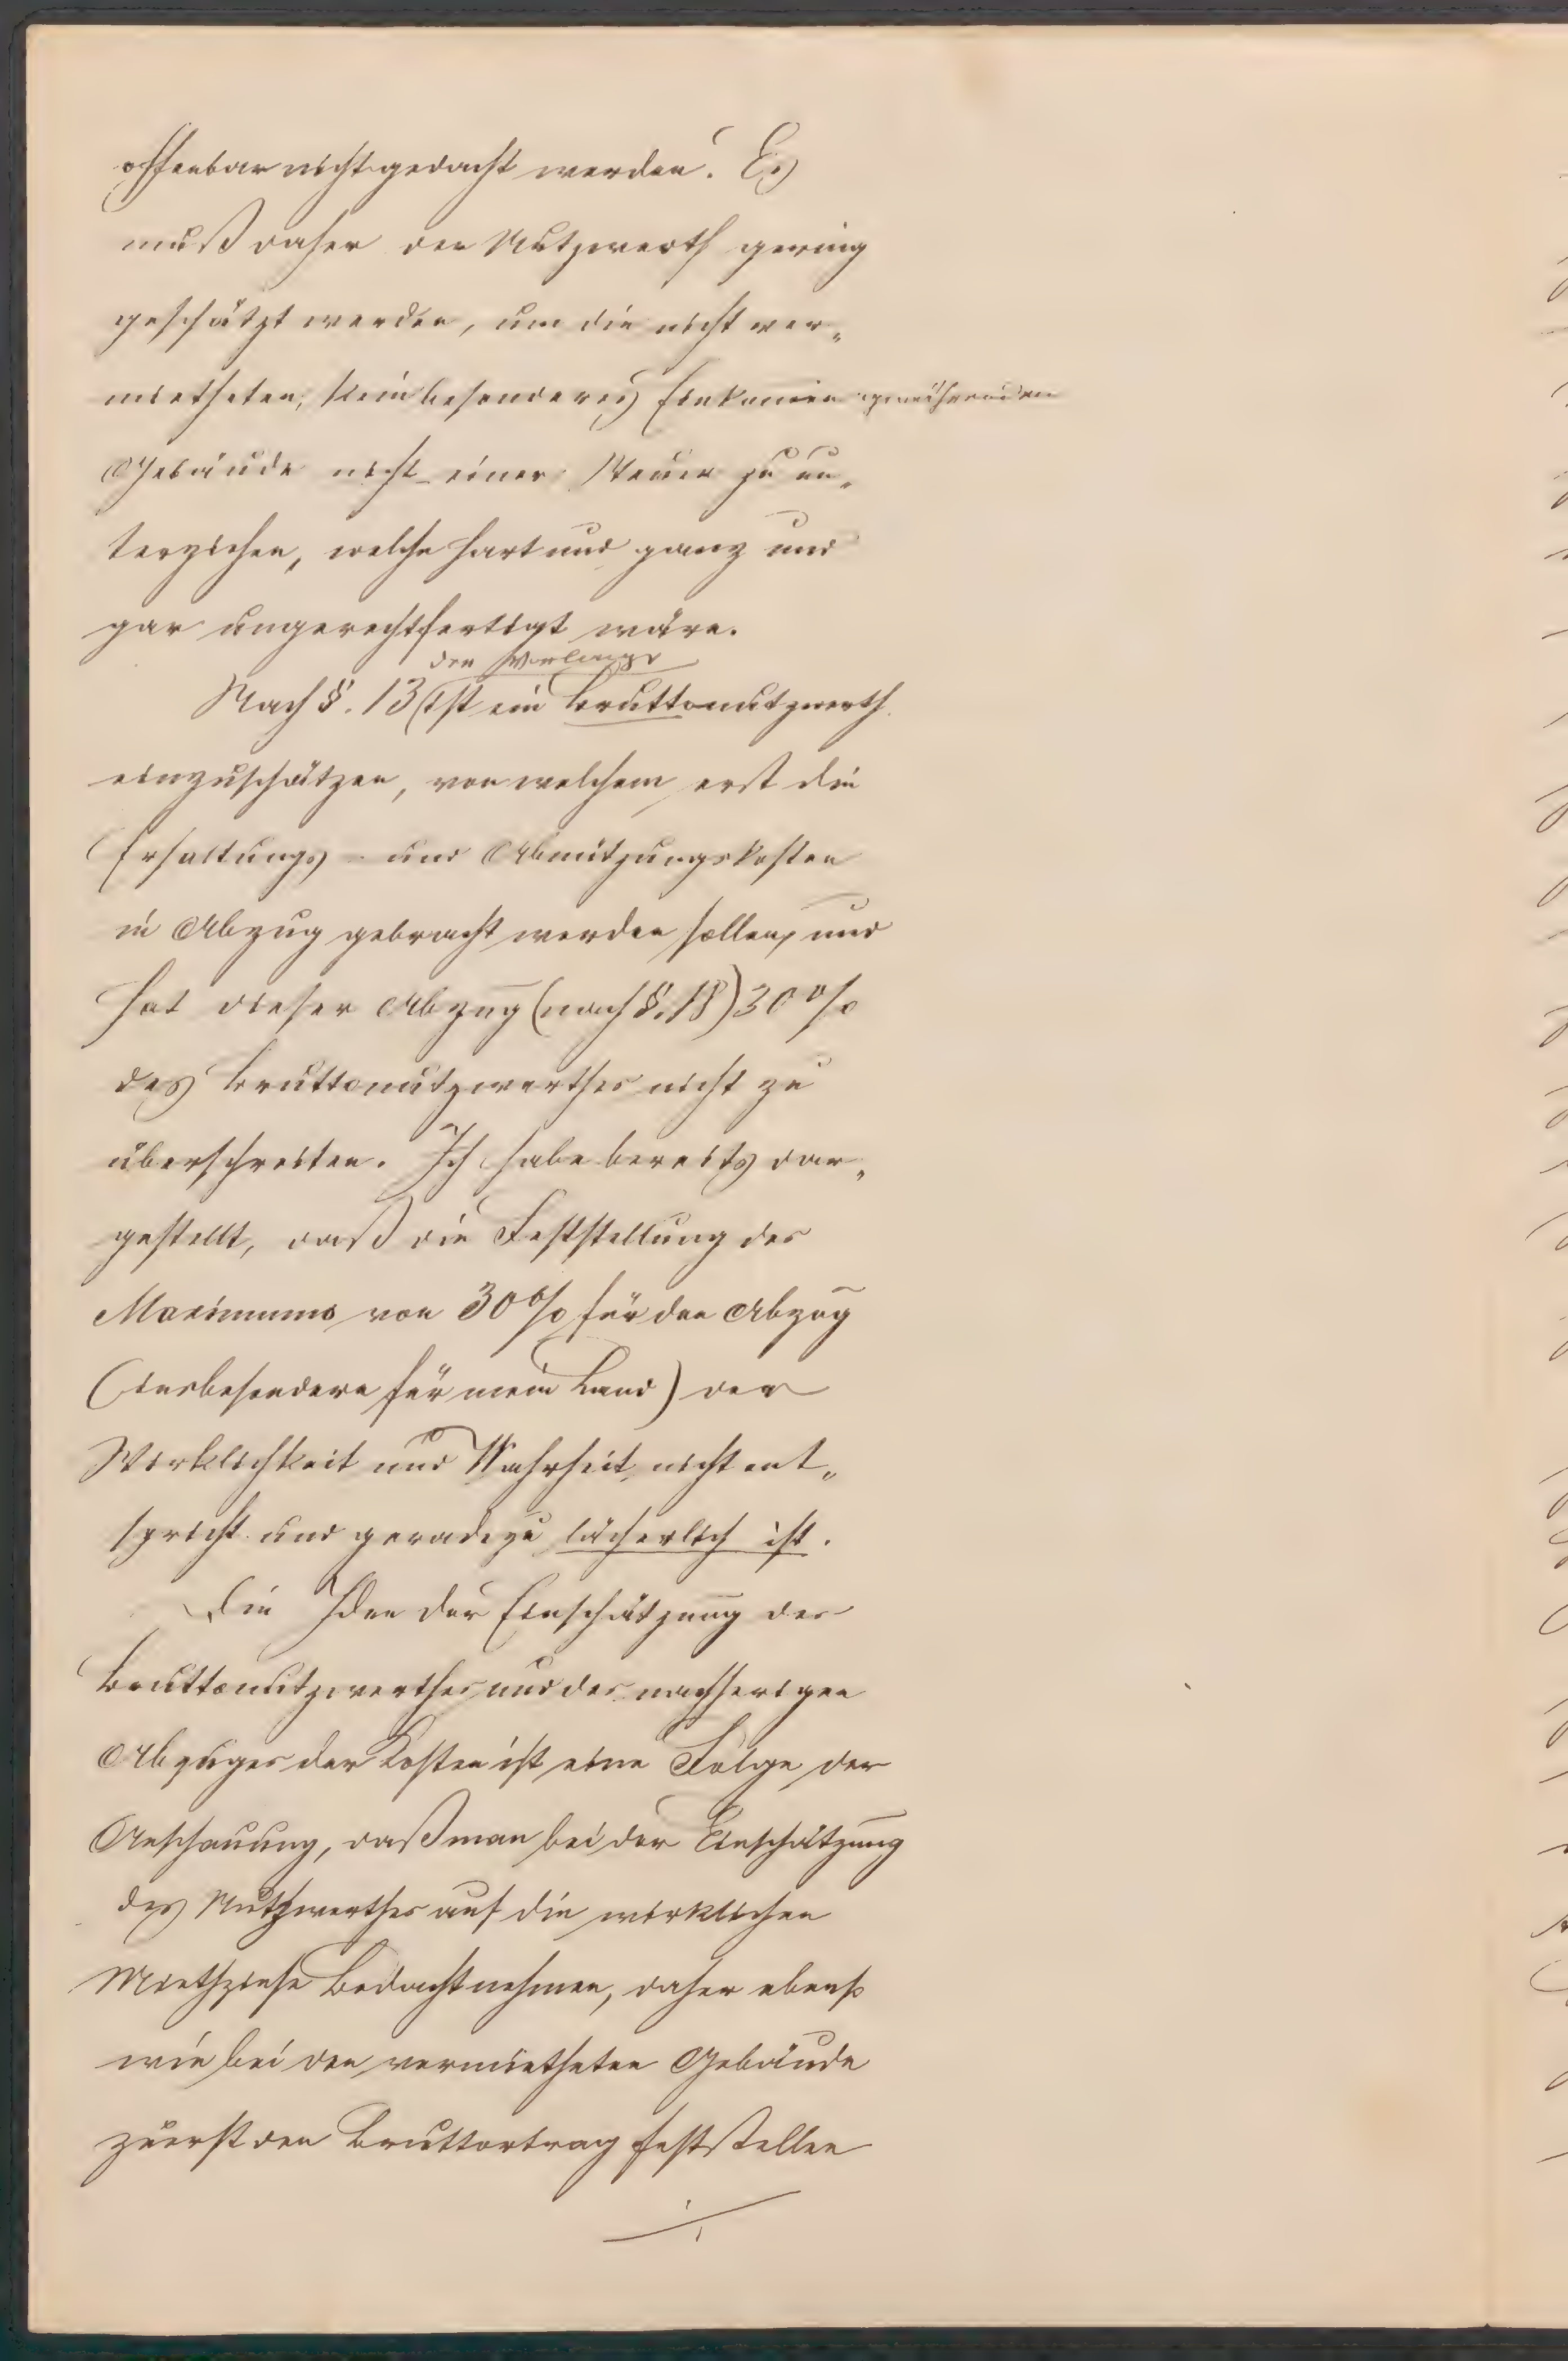 offenbar nicht gedacht werden. Es
muß daher der Nutzwerth gering
geschätzt werden, um die nicht ver„
mietheten, kein besonderes Einkommen gewährenden
Gebäude nicht einer Steuer zu un„
terziehen, welche hart und ganz und
gar ungerechtfertigt wäre.
der Vorlage
Nach §. 13 ist ein Bruttonutzwerth
einzuschätzen, von welchem erst die
Erhaltungs- und Abnützungskosten
in Abzug gebracht werden sollen, und
hat dieser Abzug (nach §. 18) 30%
des Bruttonutzwerthes nicht zu
überschreiten. Ich habe bereits dar„
gestellt, daß die Feststellung des
Maximums von 30% für den Abzug
(insbesondere für mein Land) der
Wirklichkeit und Wahrheit nicht ent„
spricht und geradezu lächerlich ist.
Die Idee der Einschätzung des
Bruttonutzwerthes und des nachherigen
Abzuges der Kosten ist eine Folge der
Anschauung, daß man bei der Einschätzung
des Nutzwerthes auf die wirklichen
Miethzinse Bedacht nehmen, daher ebenso
wie bei den vermietheten Gebäude
zuerst den Bruttoertrag feststellen